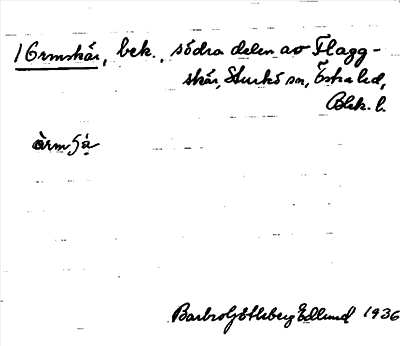 1 Ormskär, bek., södra delen av Flagg-
skär, Sturkö sn, Östra hd,
Blek. l.
Barbro Götlberg Edlund 1936